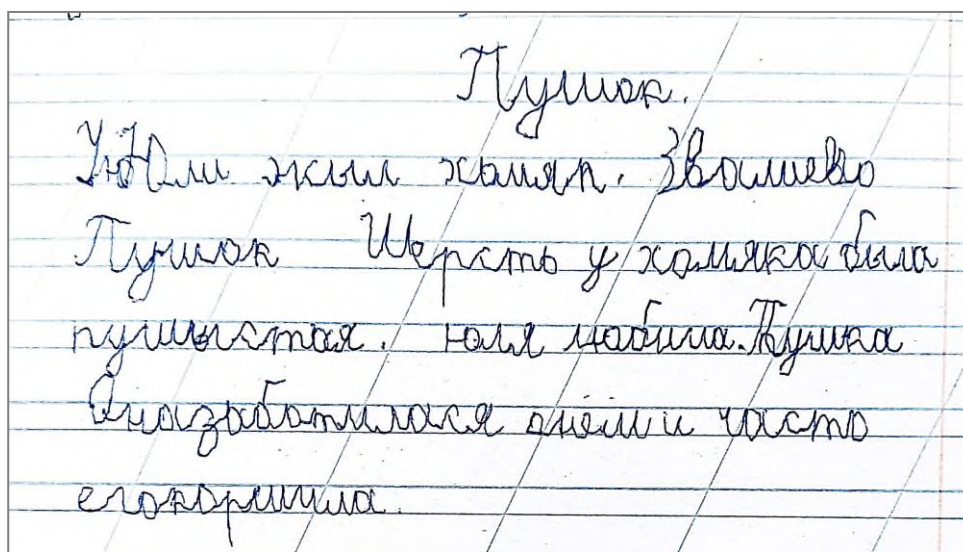 Пушок.
УюЮли жыл хомяк. Звалиево
Пушок Шерсть у хомяка была
пушыстая. юля любила.Пушка
Оназаботилася онём и часто
егокормила.